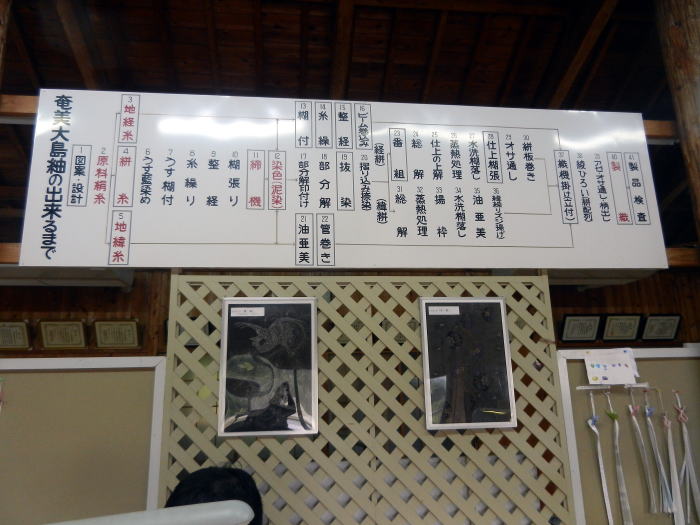 奄美大島紬の出来るまで
1 図案・設計
2 原料絹糸
3 地経糸
4 絣糸
5 地緯糸
6 うす藍染め
7 うす糊付
8 糸繰り
9 整経
10 糊張り
11 締機
12 染色(泥染)
13 糊付
14 糸繰
15 整経
16 ビーム巻込み
17 部分解印付け
18 部分解
19 抜染
20 摺り込み捺染
21 油亜美
22 管巻き
(経絣)
(緯絣)
23 番組
24 総解
25 仕上の上糊
26 蒸熱処理
27 水洗糊落し
28 仕上糊張
29 オサ通し
30 絣板巻き
31 総解
32 蒸熱処理
33 揚枠
34 水洗糊落し
35 油亜美
37 織機掛け(立付)
40 製織
41 製品検査